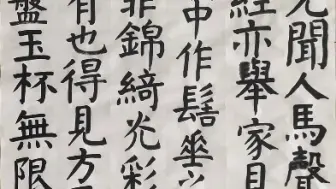 聞人馬聲
經亦舉家
中作髻
非錦綺光彩
有也得見方
盤玉杯無限